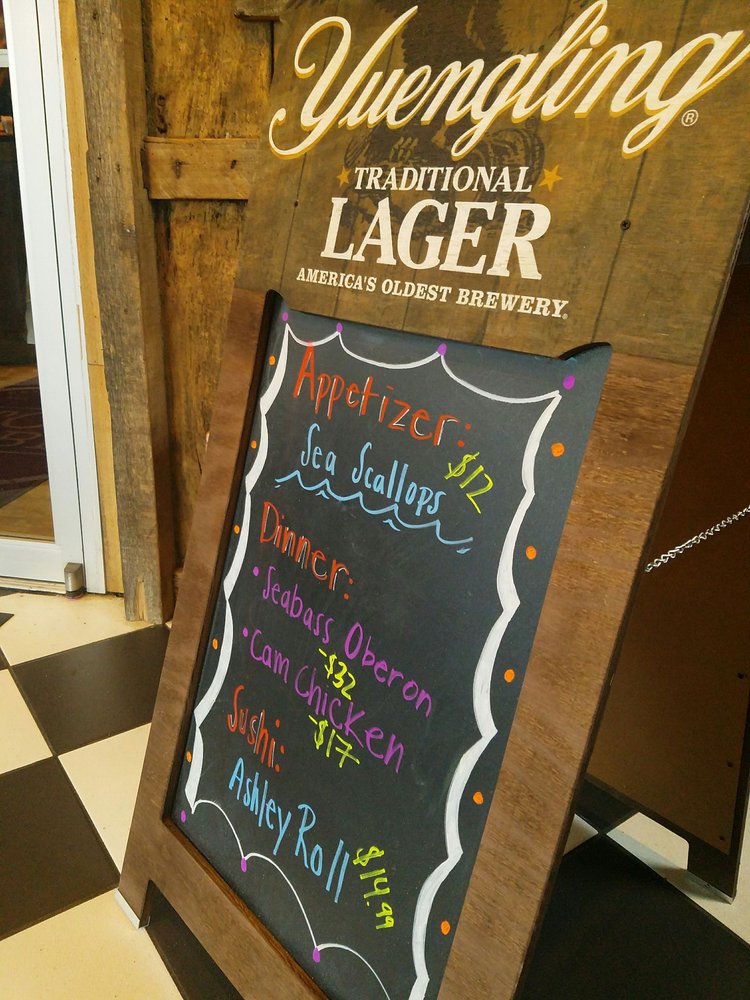 Yuengling®
TRADITIONAL
LAGER
AMERICA'S OLDEST BREWERY®
Appetizer:
Sea Scallops $12
Dinner:
• Seabass Oberon
-$32
• Cam Chicken
-$17
Sushi:
Ashley Roll $14.99